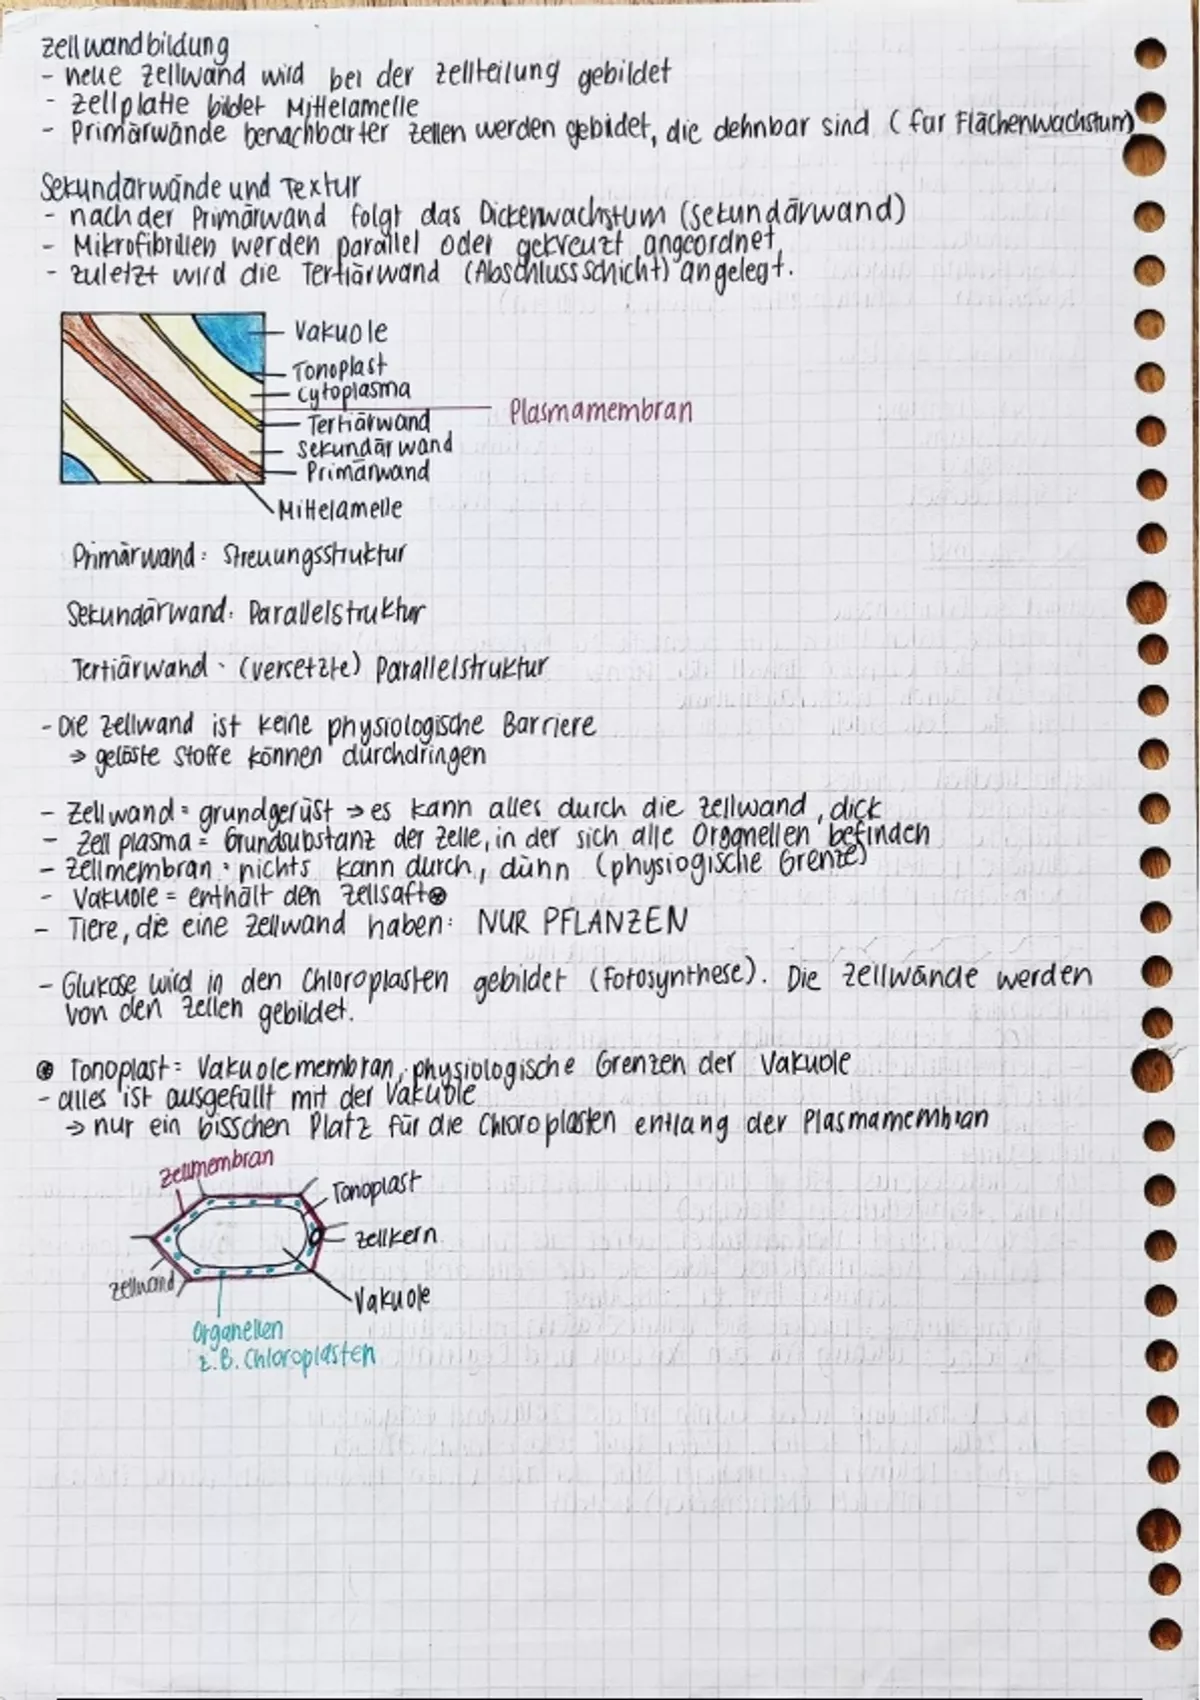 Zellwandbildung
- neue Zellwand wird bei der Zellteilung gebildet
- Zellplatte bildet Mittelamelle
- Primärwände benachbarter Zellen werden gebidet, die dehnbar sind (für Flächenwachstum)
Sekundärwände und Textur
- nach der Primärwand folgt das Dickenwachstum (Sekundärwand)
- Mikrofibrillen werden parallel oder gekreuzt angeordnet.
- zuletzt wird die Tertiärwand (Abschlussschicht) angelegt.
Vakuole
Tonoplast
Cytoplasma
Plasmamembran
Tertiärwand
Sekundärwand
Primärwand
Mittelamelle
Primärwand: Streuungsstruktur
Sekundärwand: Parallelstruktur
Tertiärwand - (versetzte) Parallelstruktur
- Die Zellwand ist keine physiologische Barriere
⇒ gelöste Stoffe können durchdringen
- Zellwand = grundgerüst → es kann alles durch die Zellwand, dick
- Zellplasma = Grundsubstanz der Zelle, in der sich alle Organellen befinden
- Zellmembran = nichts kann durch, dünn (physiogische Grenze)
- Vakuole = enthält den Zellsaft
- Tiere, die eine Zellwand haben: NUR PFLANZEN
- Glukose wird in den Chloroplasten gebildet (Fotosynthese). Die Zellwände werden
von den Zellen gebildet.
Tonoplast = Vakuolemembran, physiologische Grenzen der Vakuole
- alles ist ausgefüllt mit der Vakuole
→ nur ein bisschen Platz für die Chloroplasten entlang der Plasmamembran
Zellmembran
Tonoplast
Zellkern
Zellwand
Vakuole
Organellen
z.B. Chloroplasten